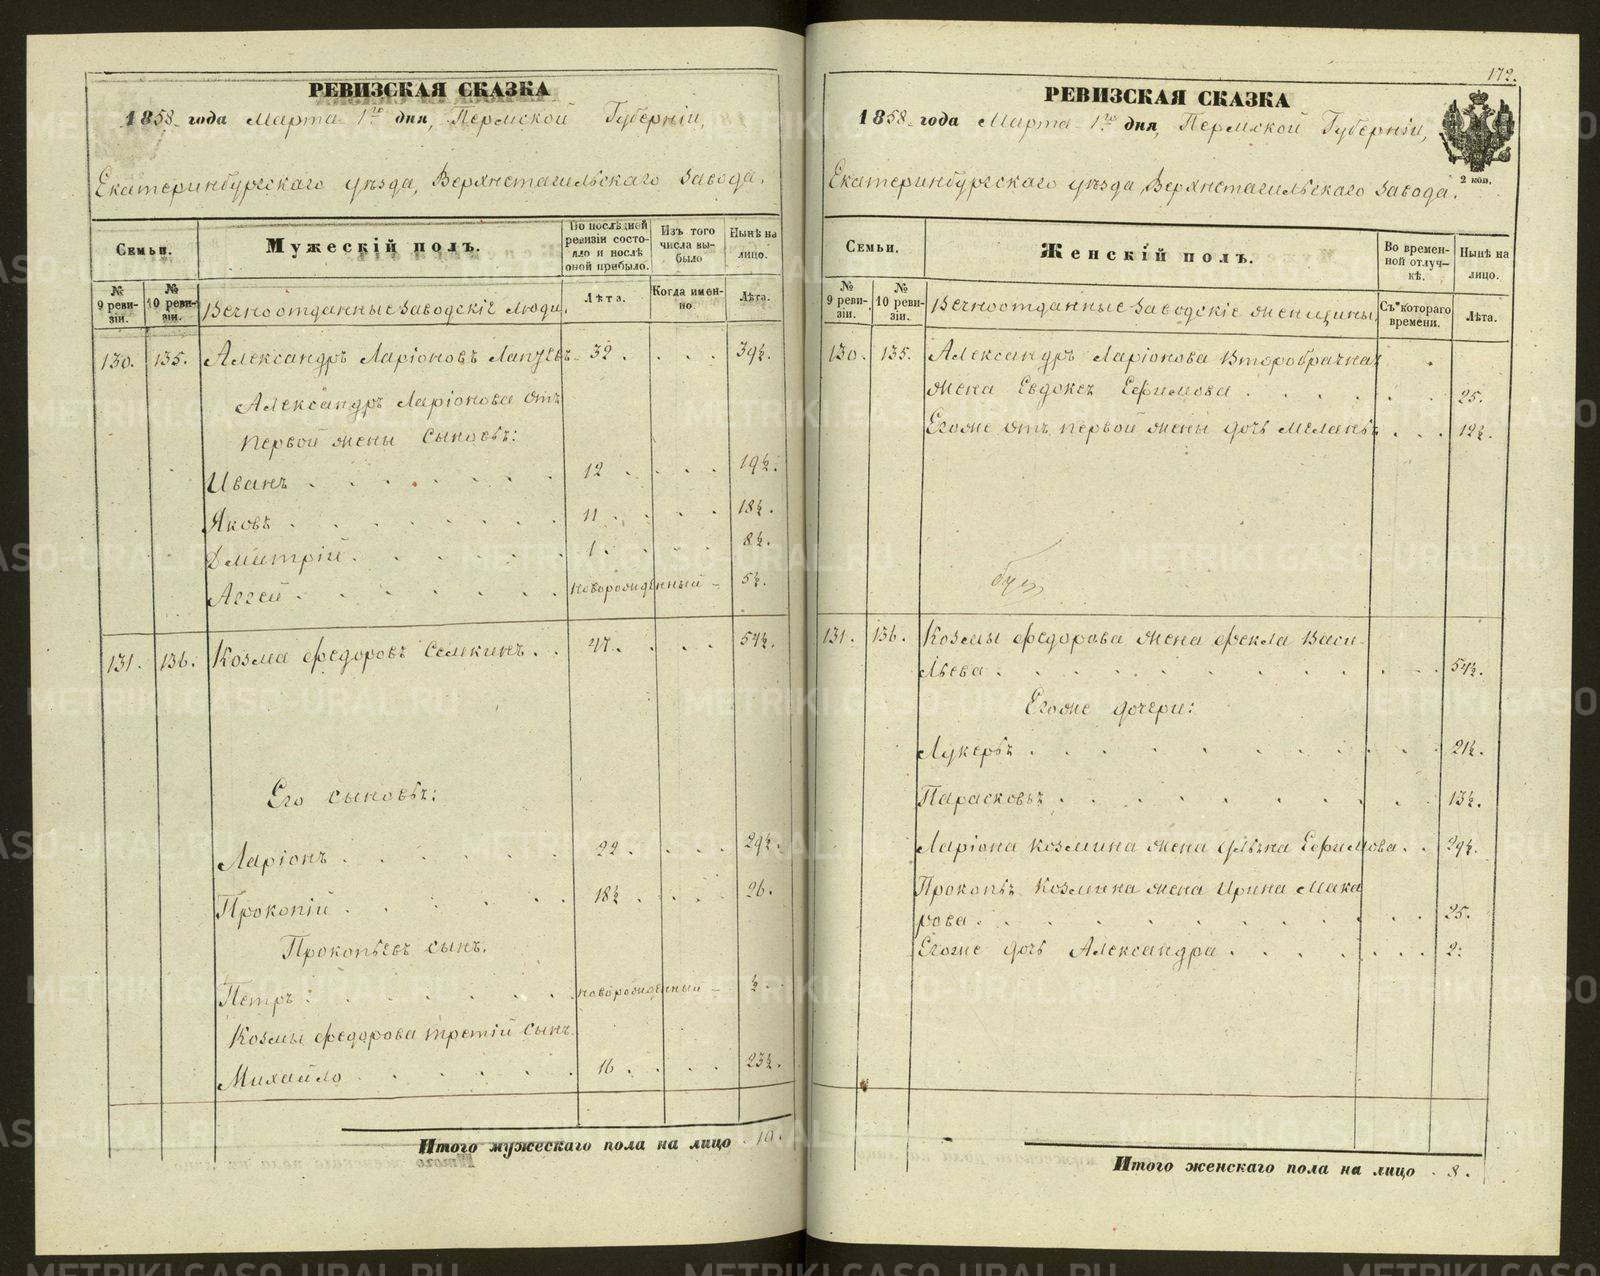 РЕВИЗСКАЯ СКАЗКА
1858 года Марта 1го дня, Пермской Губерніи,
Екатеринбургскаго уѣзда, Верхнетагильскаго завода.
Семьи.
Мужескій полъ.
По послѣдней ревизіи состояло и послѣ оной прибыло.
Изъ того числа выбыло
Нынѣ на лицо.
№ 9 ревизіи.
№ 10 ревизіи.
Вечноотданные заводскіе люди.
Лѣта.
Когда именно.
Лѣта.
130. 135. Александръ Ларіоновъ Лапуевъ 32 . . . . 39½.
Александръ Ларіонова отъ
первой жены сыновья:
Иванъ . . . . . . . 12 . . . . 19½.
Яковъ . . . . . . . 11 . . . . 18½.
Дмитрій . . . . . . 1 . . . . 8½.
Аггей . . . . . . . новорожденный – 5½.
131. 136. Козма Федоровъ Селкинъ . . 47 . . . . 54½.
Его сыновья:
Ларіонъ . . . . . . 22 . . . . 29½.
Прокопій . . . . . . 18½ . . . . 26.
Прокопьевъ сынъ.
Петръ . . . . . . . новорожденный – ½.
Козмы Федорова третій сынъ
Михайло . . . . . . 16 . . . . 23½.
Итого мужескаго пола на лицо . 10.
172.
РЕВИЗСКАЯ СКАЗКА
1858 года Марта 1го дня, Пермской Губерніи,
Екатеринбургскаго уѣзда, Верхнетагильскаго завода.
2 коп.
Семьи.
Женскій полъ.
Во временной отлучкѣ.
Нынѣ на лицо.
№ 9 ревизіи.
№ 10 ревизіи.
Вечноотданные заводскіе женщины.
Съ котораго времени.
Лѣта.
130. 135. Александръ Ларіонова второбрачная
жена Евдокея Ефимова . . . . . . 25.
Егоже отъ первой жены дочь Меланья . . . 12½.
131. 136. Козмы Федорова жена Фекла Васи-
льева . . . . . . . . . . 54½.
Егоже дочери:
Лукерья . . . . . . . . . . 21½.
Парасковья . . . . . . . . . 13½.
Ларіона Козмина жена Ульяна Ефимова . . 29½.
Прокопья Козмина жена Ирина Мака
рова . . . . . . . . . . 25.
Егоже дочь Александра . . . . . . . 2.
Итого женскаго пола на лицо . 8.
METRIKI.GASO-URAL.RU